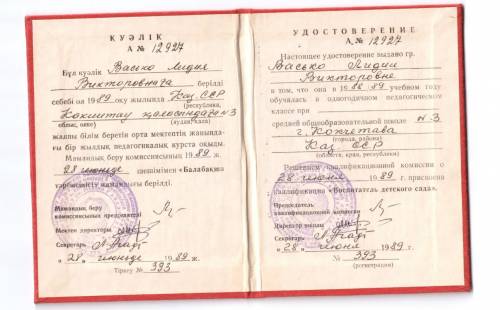 КУӘЛІК
А № 12927
Бұл куәлік Васько Лидия
Викторовнаға берілді
себебі ол 1989 оқу жылында Каз ССР
(республика,
Кокшетау қаласындағы №3
облыс, округ) (аудан/қала)
жалпы білім беретін орта мектептің жанында-
ғы бір жылдық педагогикалық курста оқыды.
Мамандық беру комиссиясының 1989 ж.
28 июньде шешімімен «Балабақша
тәрбиешісі» мамандығы берілді.
Мамандық беру
комиссиясының председателі
Мектеп директоры
Секретарь
„28" июньде 1989 ж.
Тіркеу № 393
УДОСТОВЕРЕНИЕ
А № 12927
Настоящее удостоверение выдано гр.
Васько Лидии
Викторовне
в том, что она в 1988-89 учебном году
обучалась в одногодичном педагогическом
классе при
средней общеобразовательной школе №3
г. Кокчетава
(города, района)
Каз ССР
(область, края, республики)
Решением квалификационной комиссии о
28 июня 1989 г. присвоена
квалификация «Воспитатель детского сада».
Председатель
квалификационной комиссии
Директор школы
Секретарь
„28" июня 1989 г.
№ 393
(регистрации)